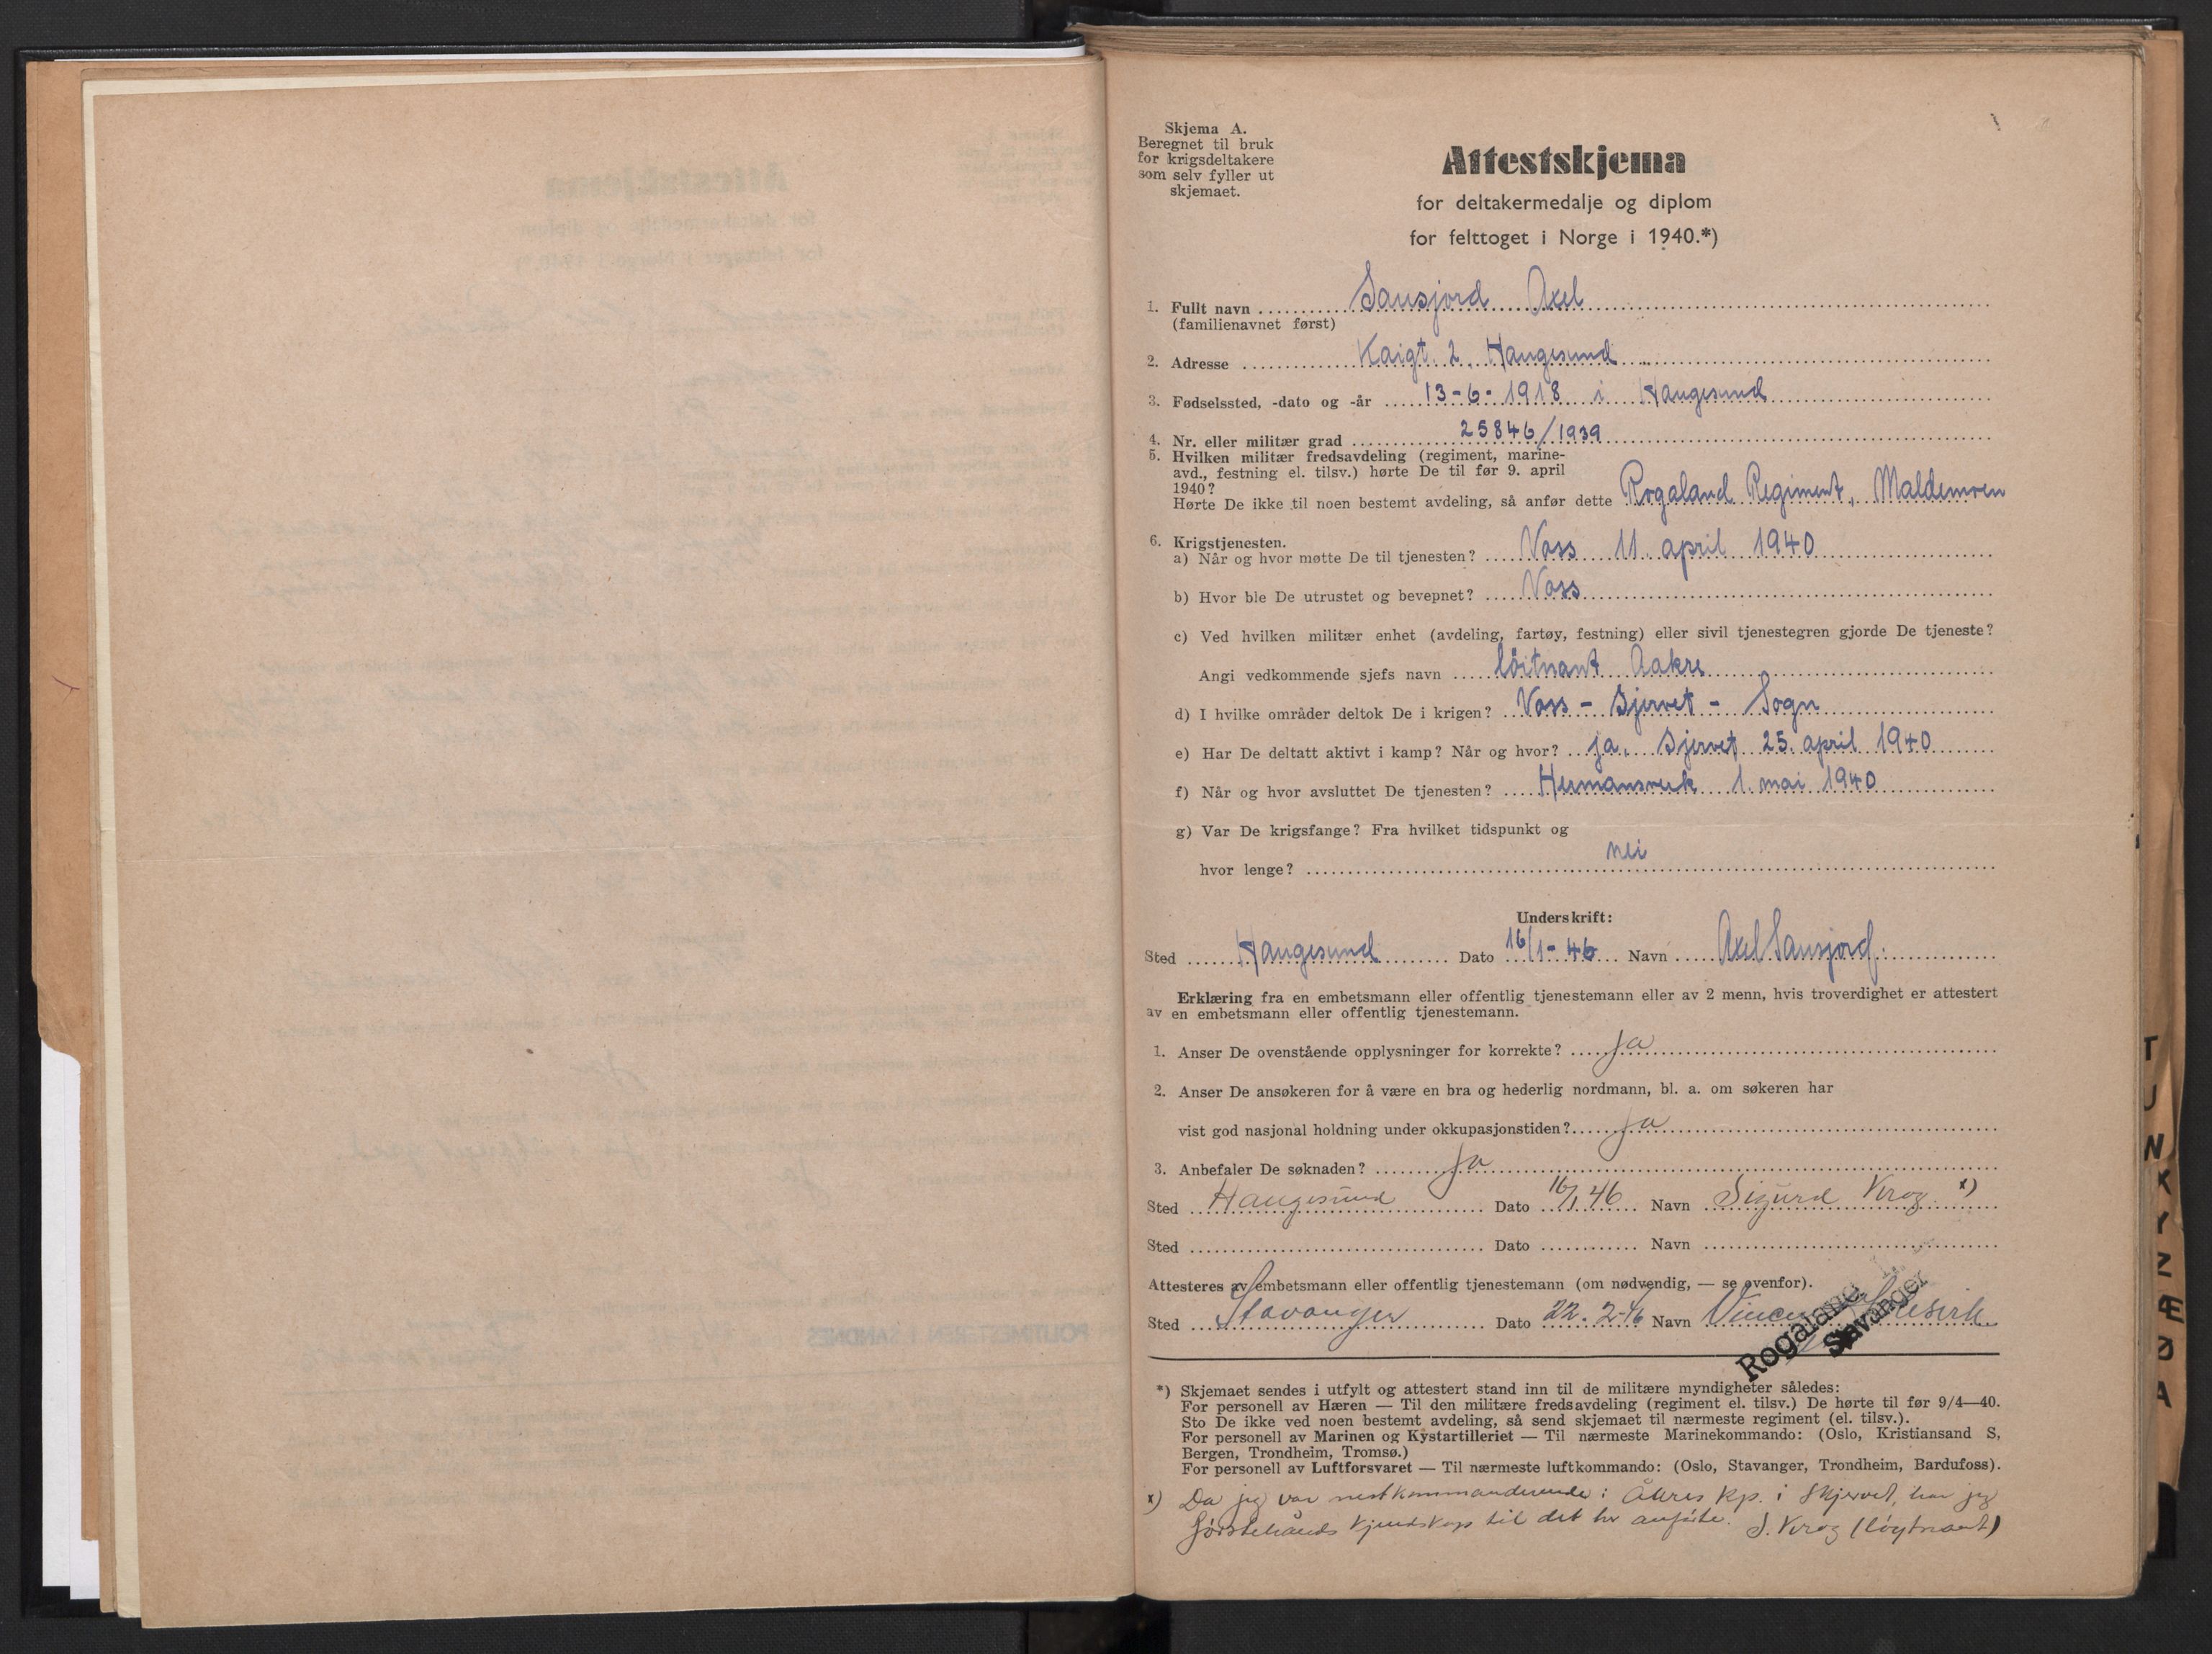 Skjema A.
Beregnet til bruk
for krigsdeltakere
som selv fyller ut
skjemaet.
Attestskjema
for deltakermedalje og diplom
for felttoget i Norge i 1940.*)
1. Fullt navn Sausjord Axel
(familienavnet først)
2. Adresse Kaigt. 2, Haugesund
3. Fødselssted, -dato og -år 13-6-1918 i Haugesund
4. Nr. eller militær grad 25846/1939
5. Hvilken militær fredsavdeling (regiment, marine-
avd., festning el. tilsv.) hørte De til før 9. april
1940?
Hørte De ikke til noen bestemt avdeling, så anfør dette Rogaland Regiment, Maldemoen
6. Krigstjenesten.
a) Når og hvor møtte De til tjenesten? Voss 11. april 1940
b) Hvor ble De utrustet og bevepnet? Voss
c) Ved hvilken militær enhet (avdeling, fartøy, festning) eller sivil tjenestegren gjorde De tjeneste?
Angi vedkommende sjefs navn löitnant Aakre
d) I hvilke områder deltok De i krigen? Voss - Sjervet - Sogn
e) Har De deltatt aktivt i kamp? Når og hvor? ja. Sjervet 25. april 1940
f) Når og hvor avsluttet De tjenesten? Hermansverk 1. mai 1940
g) Var De krigsfange? Fra hvilket tidspunkt og
hvor lenge? nei
Underskrift:
Sted Haugesund Dato 16/1-46 Navn Axel Sausjord.
Erklæring fra en embetsmann eller offentlig tjenestemann eller av 2 menn, hvis troverdighet er attestert
av en embetsmann eller offentlig tjenestemann.
1. Anser De ovenstående opplysninger for korrekte? ja
2. Anser De ansøkeren for å være en bra og hederlig nordmann, bl. a. om søkeren har
vist god nasjonal holdning under okkupasjonstiden? ja
3. Anbefaler De søknaden? ja
Sted Haugesund Dato 16/1 46 Navn Sigurd x)
Sted Dato Navn
Attesteres av embetsmann eller offentlig tjenestemann (om nødvendig, — se ovenfor).
Sted Stavanger Dato 22.2-46 Navn
Rogaland
Stavanger
*) Skjemaet sendes i utfylt og attestert stand inn til de militære myndigheter således:
For personell av Hæren — Til den militære fredsavdeling (regiment el. tilsv.) De hørte til før 9/4—40.
Sto De ikke ved noen bestemt avdeling, så send skjemaet til nærmeste regiment (el. tilsv.).
For personell av Marinen og Kystartilleriet — Til nærmeste Marinekommando: (Oslo, Kristiansand S,
Bergen, Trondheim, Tromsø.)
For personell av Luftforsvaret — Til nærmeste luftkommando: (Oslo, Stavanger, Trondheim, Bardufoss).
x) Da jeg var nestkommanderende i Åkres Kp. i Skjervet, har jeg
förstehånds kjendskap til det her anførte. S. (löytnant)